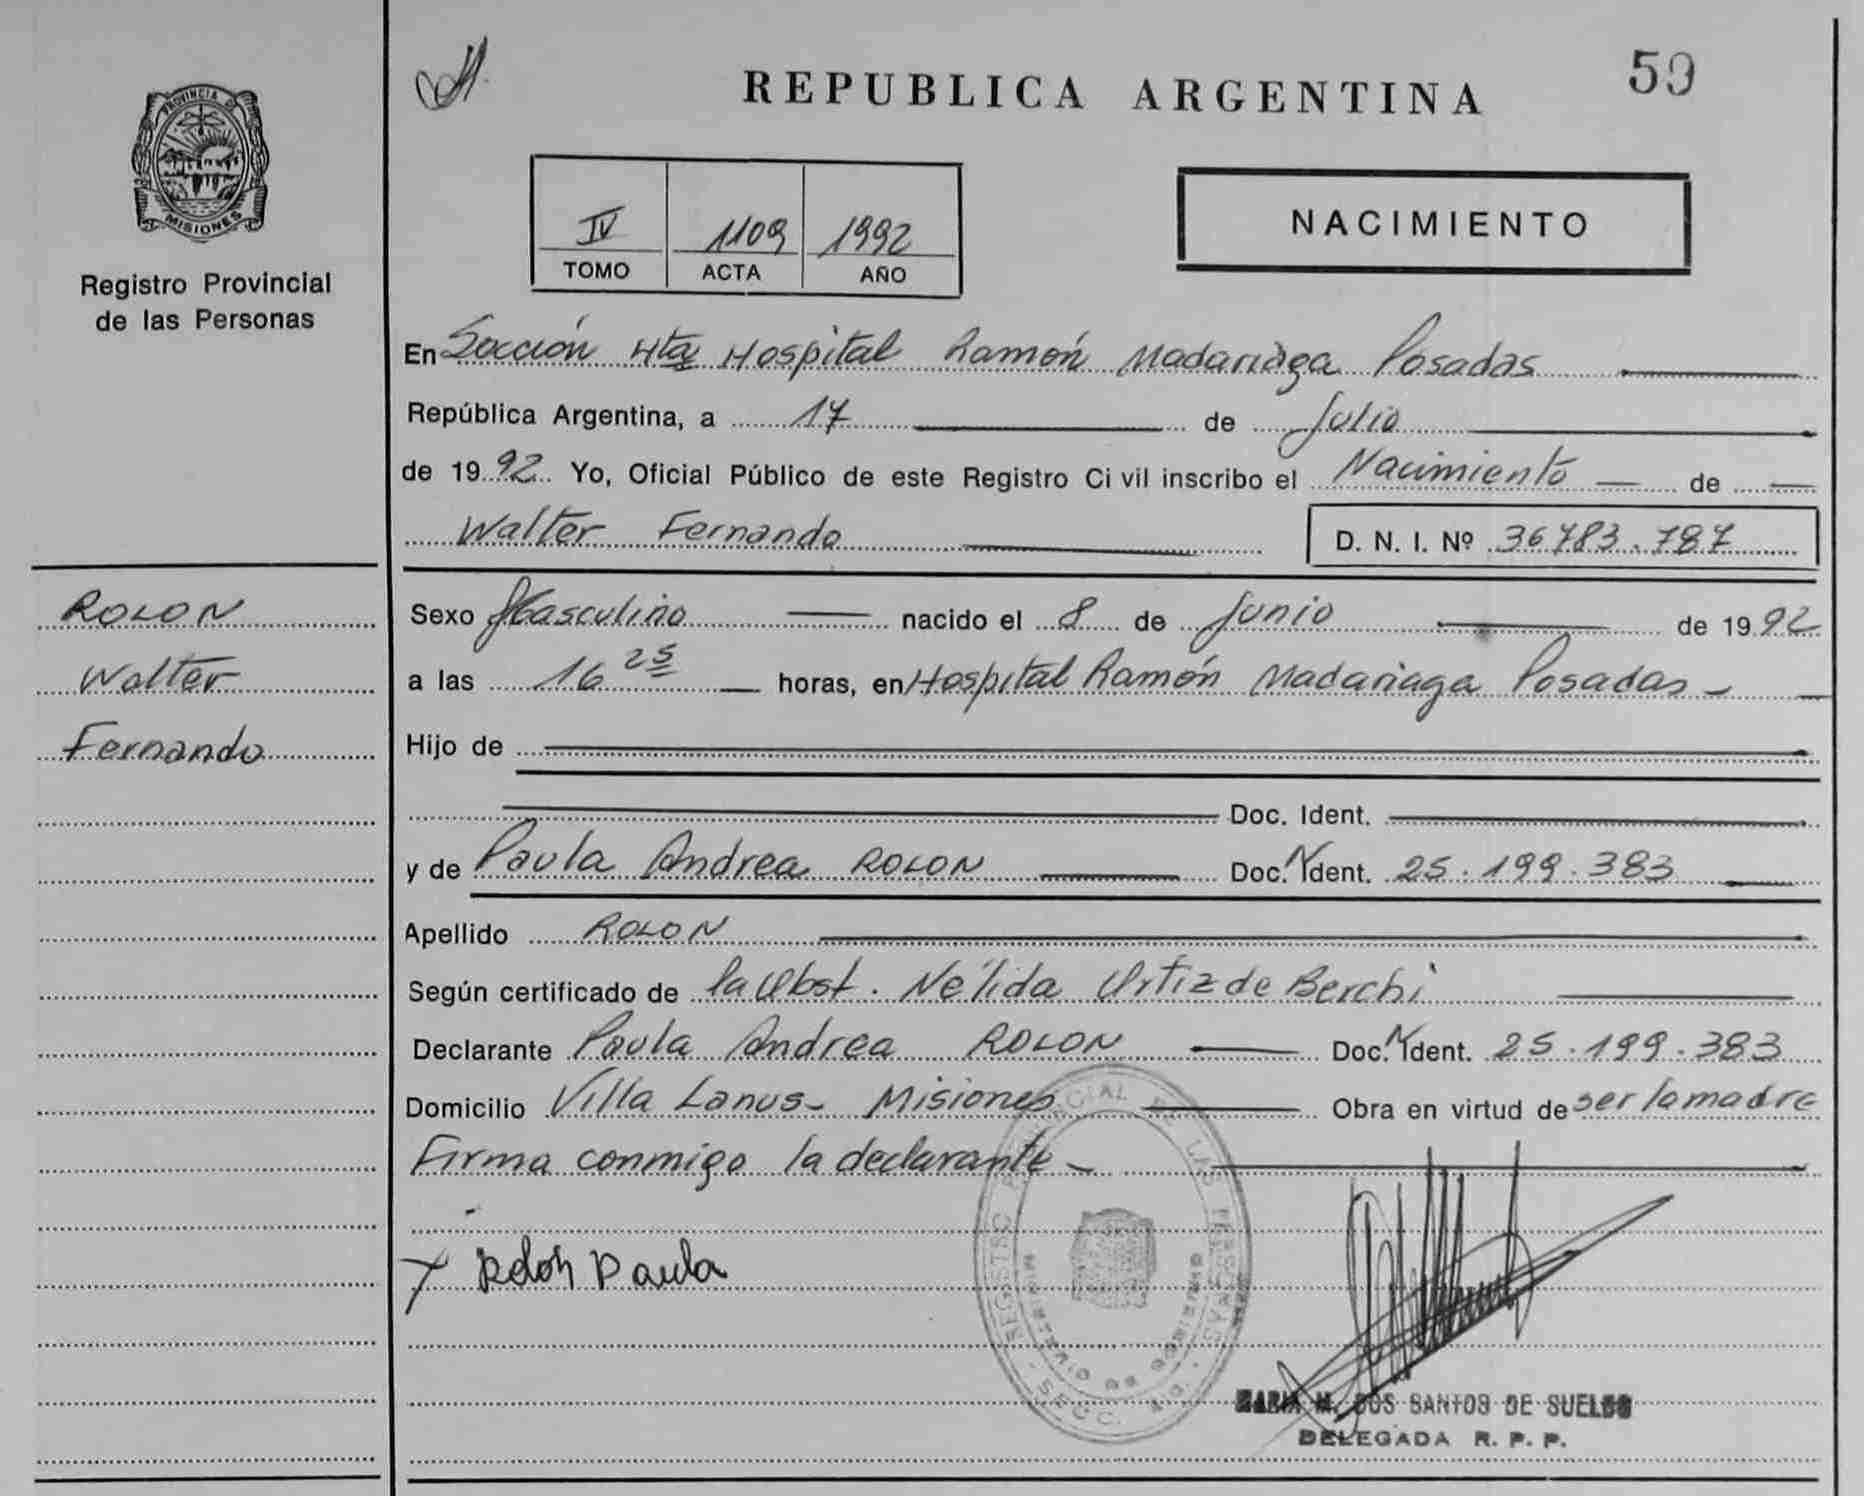 REPUBLICA ARGENTINA
59
PROVINCIA D
MISIONES
Registro Provincial
de las Personas
IV 1109 1992
TOMO ACTA AÑO
NACIMIENTO
En Sección 4ta Hospital Ramón Madariaga Posadas
República Argentina, a 17 de Julio
de 1992 Yo, Oficial Público de este Registro Civil inscribo el Nacimiento de
Walter Fernando D. N. I. Nº 36783.787
ROLON
Walter
Fernando
Sexo Masculino nacido el 8 de Junio de 1992
a las 16 25 horas, en Hospital Ramón Madariaga Posadas
Hijo de
Doc. Ident.
y de Paula Andrea ROLON Doc. N Ident. 25.199.383
Apellido ROLON
Según certificado de la Obst. Nélida Ortiz de Berchi
Declarante Paula Andrea ROLON Doc. N Ident. 25.199.383
Domicilio Villa Lanus - Misiones Obra en virtud de ser la madre
Firma conmigo la declarante
Rolon Paula
MARIA M. DOS SANTOS DE SUELDO
DELEGADA R. P. P.